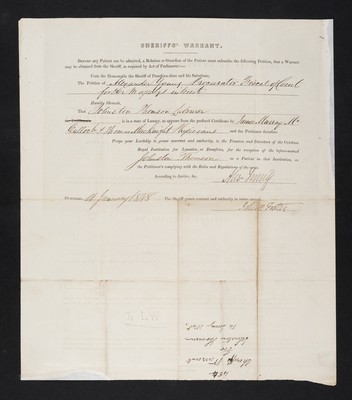 SHERIFFS' WARRANT.
BEFORE any Patient can be admitted, a Relation or Guardian of the Patient must subscribe the following Petition, that a Warrant
may be obtained from the Sheriff, as required by Act of Parliament:—
Unto the Honourable the Sheriff of Dumfries-shire and his Substitute;
The Petition of Alexander Young Procurator Fiscal of Court
for Her Majestys interest
Humbly Sheweth,
That Johnston Thomson Labourer
is in a state of Lunacy, as appears from the prefixed Certificate by James Murray Mc
Culloch & Thomas Physicians and the Petitioner therefore
Prays your Lordship to grant warrant and authority to the Trustees and Directors of the Crichton
Royal Institution for Lunatics at Dumfries, for the reception of the before-named
Johnston Thomson as a Patient in that Institution, on
the Petitioner's complying with the Rules and Regulations of the same.
According to Justice, &c.
Alexr Young
DUMFRIES, 14 January 1848 The Sheriff grants warrant and authority in terms
Sheriffs Warrant
for
Johnston Thomson
14 Jany 1848.